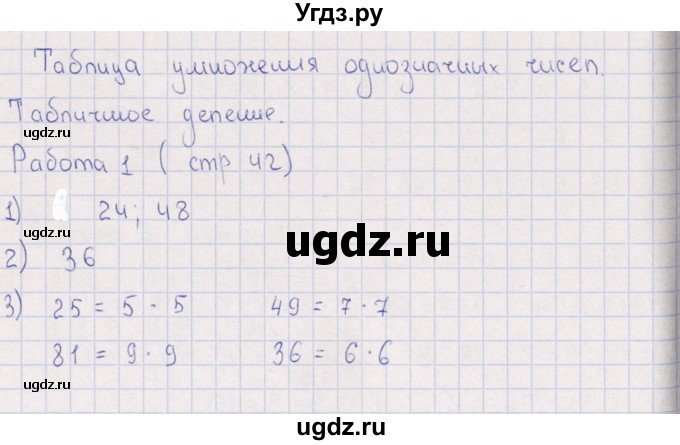 Угдз.ру
Таблица умножения однозначных чисел.
Табличное деление.
ugdz.ru
Работа 1 ( стр 42)
1) 24; 48
ugdz.ru
ugdz.ru
2) 36
3) 25 = 5 · 5 49 = 7 · 7
81 = 9 · 9 36 = 6 · 6
ugdz.ru
ugdz.ru